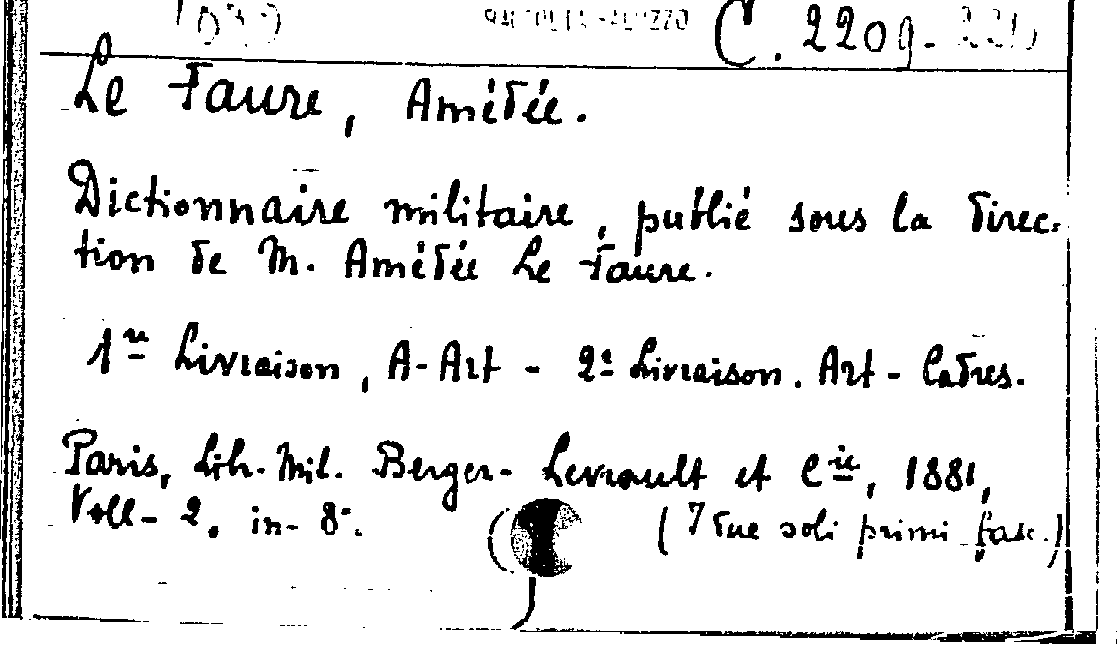 C. 2209-
Le Faure, Amédée.
Dictionnaire militaire, publié sous la direc-
tion de M. Amédée Le Faure.
1re Livraison, A-Art - 2e Livraison. Art - Cadres.
Paris, Lib. Mil. Berger-Levrault et Cie, 1881,
Voll- 2. in-8°.
( I due soli primi fasc.)